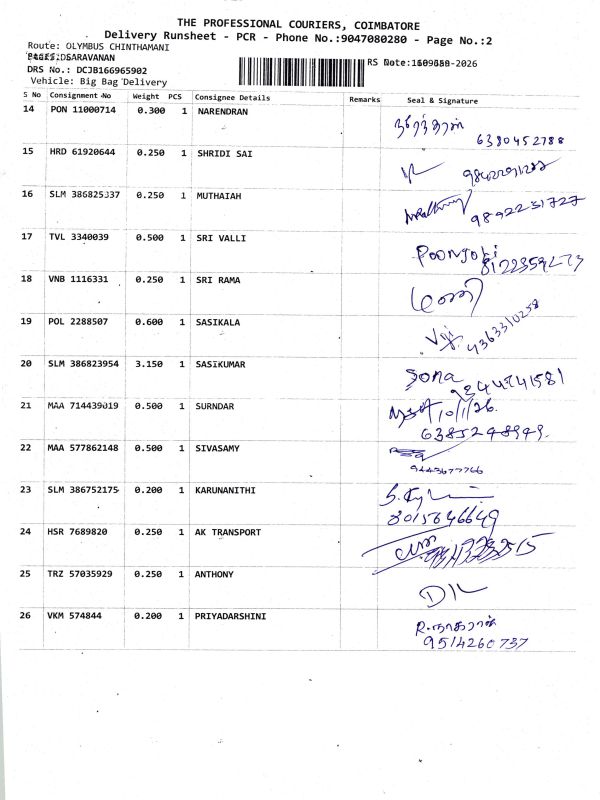 THE PROFESSIONAL COURIERS, COIMBATORE
Delivery Runsheet - PCR - Phone No.:9047080280 - Page No.:2
Route: OLYMBUS CHINTHAMANI
SARAVANAN
DRS No.: DCJB166965902
Vehicle: Big Bag Delivery
S No Consignment No Weight PCS Consignee Details Remarks Seal & Signature
14 PON 11000714 0.300 1 NARENDRAN
6380452788
15 HRD 61920644 0.250 1 SHRIDI SAI
16 SLM 386825337 0.250 1 MUTHAIAH
9892231727
17 TVL 3340039 0.500 1 SRI VALLI
18 VNB 1116331 0.250 1 SRI RAMA
19 POL 2288507 0.600 1 SASIKALA
Viji 4363310258
20 SLM 386823954 3.150 1 SASIKUMAR
Sona
21 MAA 714439019 0.500 1 SURNDAR
10/1/26.
6385248949.
22 MAA 577862148 0.500 1 SIVASAMY
9443677766
23 SLM 386752175 0.200 1 KARUNANITHI
8015646649
24 HSR 7689820 0.250 1 AK TRANSPORT
25 TRZ 57035929 0.250 1 ANTHONY
26 VKM 574844 0.200 1 PRIYADARSHINI
R. நாகராஜ்
9514260737